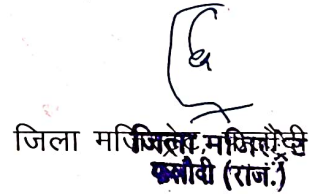 जिला मजिस्ट्रेट, फलौदी
जिला मजिस्ट्रेट
फलौदी (राज.)